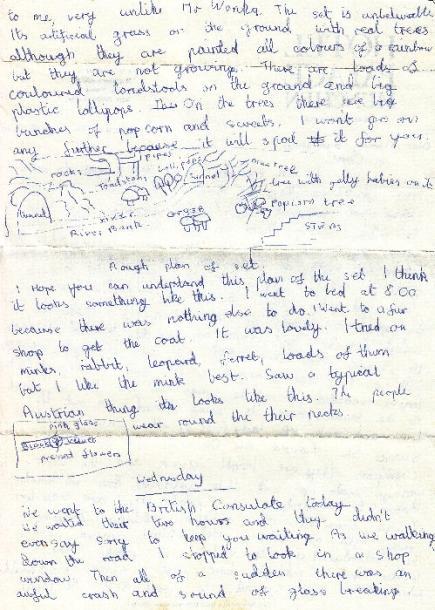 to me, very unlike Mr Wonka. The set is unbelievable
Its artificial grass on the ground with real trees
although they are painted all colours of a rainbow
but they are not growing. There are loads of
couloured toadstools on the ground and big
plastic lollipops. On the trees there are big
bunches of popcorn and sweets. I wont go on
any further because it will spoil it for you.
rocks
pipes
toadstools
tunnel
tree with jelly babies on it
Popcorn tree
Tunnel
river
River Bank
STEPS
Rough plan of set.
I Hope you can understand this plan of the set I think
it looks something like this. I went to bed at 8.00
because there was nothing else to do. I went to a fur
shop to get the coat. It was lovely. I tried on
minks, rabbit, leopard, ferret, loads of them
but I like the mink best. Saw a typical
Austrian thing looks like this. The people
wear round the their necks.
pink glass
pressed flowers
Wednesday
We went to the British Consulate today
We waited there two hours and they didn't
even say sorry to keep you waiting. As we walking
down the road I stopped to look in a shop
window. Then all of a sudden there was an
awful crash and sound of glass breaking.